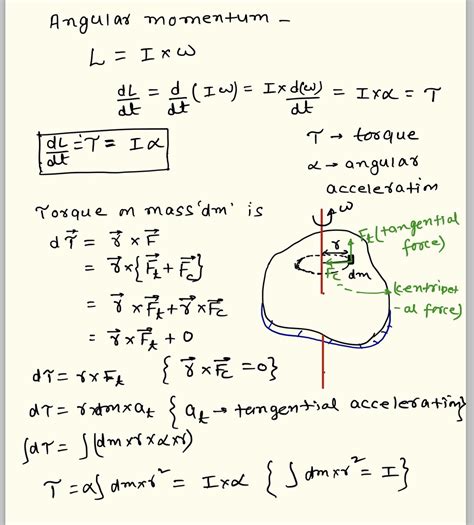 Angular momentum -
L = I × ω
dL/dt = d/dt (Iω) = I × d(ω)/dt = I×α = τ
dL/dt = τ = Iα
τ → torque
α → angular
acceleration
Torque on mass 'dm' is
dτ⃗ = r⃗ × F⃗
= r⃗ × {F⃗t + F⃗c}
= r⃗ × F⃗t + r⃗ × F⃗c
= r⃗ × F⃗t + 0
dτ = r × Ft { r⃗ × F⃗c = 0}
dτ = r × dm × at { at → tangential acceleration}
∫dτ = ∫(dm × r × α × r)
τ = α∫dm × r² = I × α { ∫dm × r² = I}
ω
Ft (tangential
force)
r
Fc
dm
(centripet
-al force)